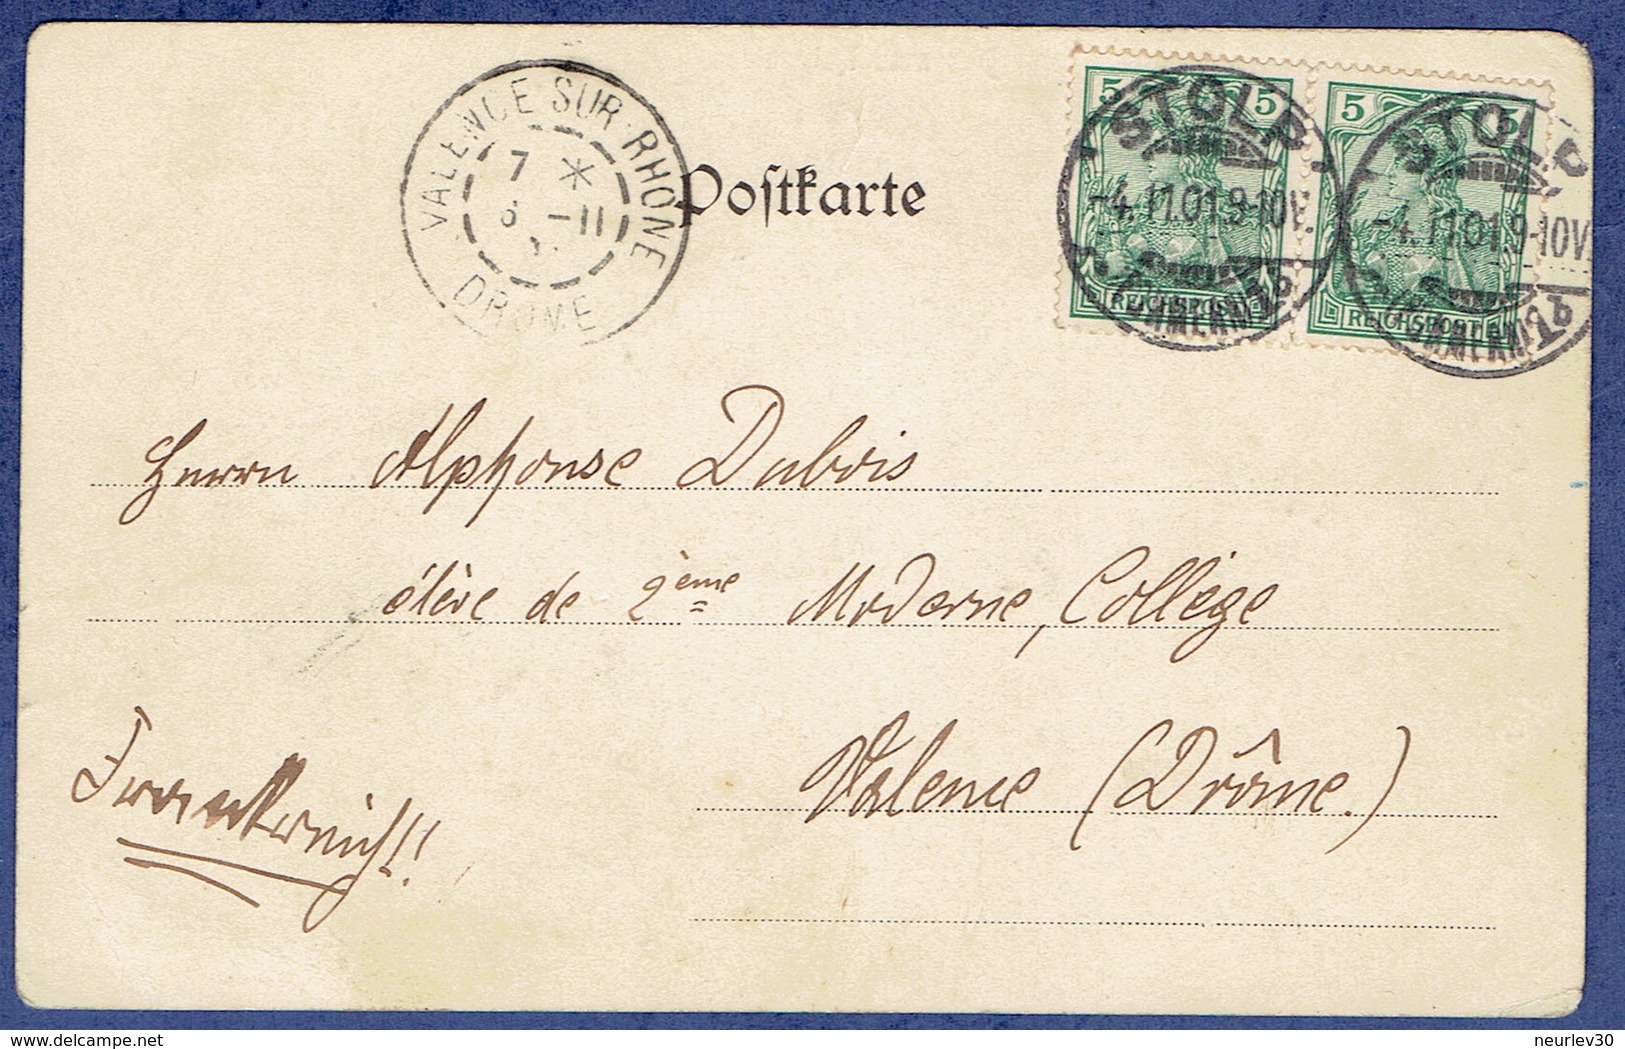 VALENCE SUR-RHONE
7 *
6 -11
DROME
Postkarte
5 5
STOLP
-4.11.01.9-10V.
(POMMERN)
REICHSPOST
5 5
STOLP
-4.11.01.9-10V.
(POMMERN)
REICHSPOST
Herrn Alphonse Dubois
élève de 2ème Moderne, Collège
Valence (Drôme.)
Frankreich!!
delcampe.net
neurlev30